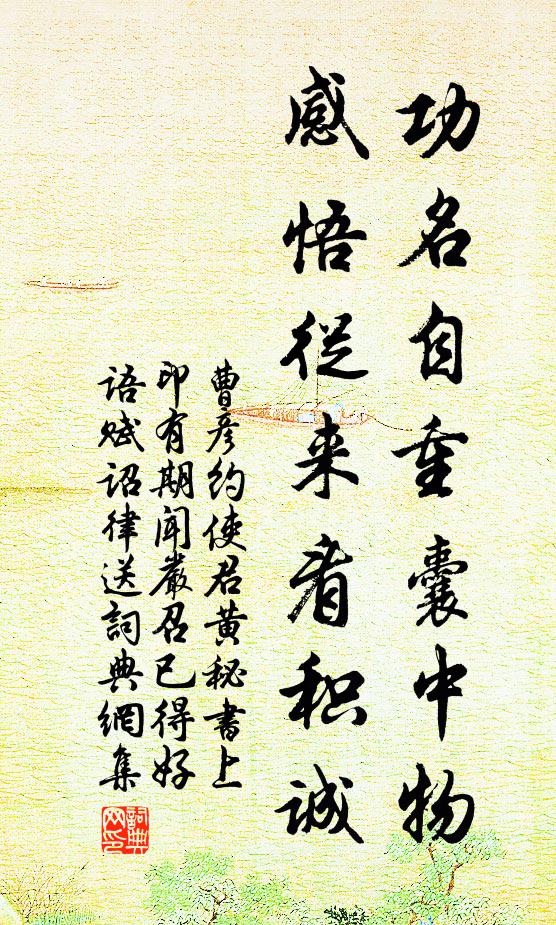 功名自重囊中物
感悟從来看积诚
曹彦约使君黄秘书上
印有期闻嚴召已得好
语赋诏律送詞典網集
詞典网印